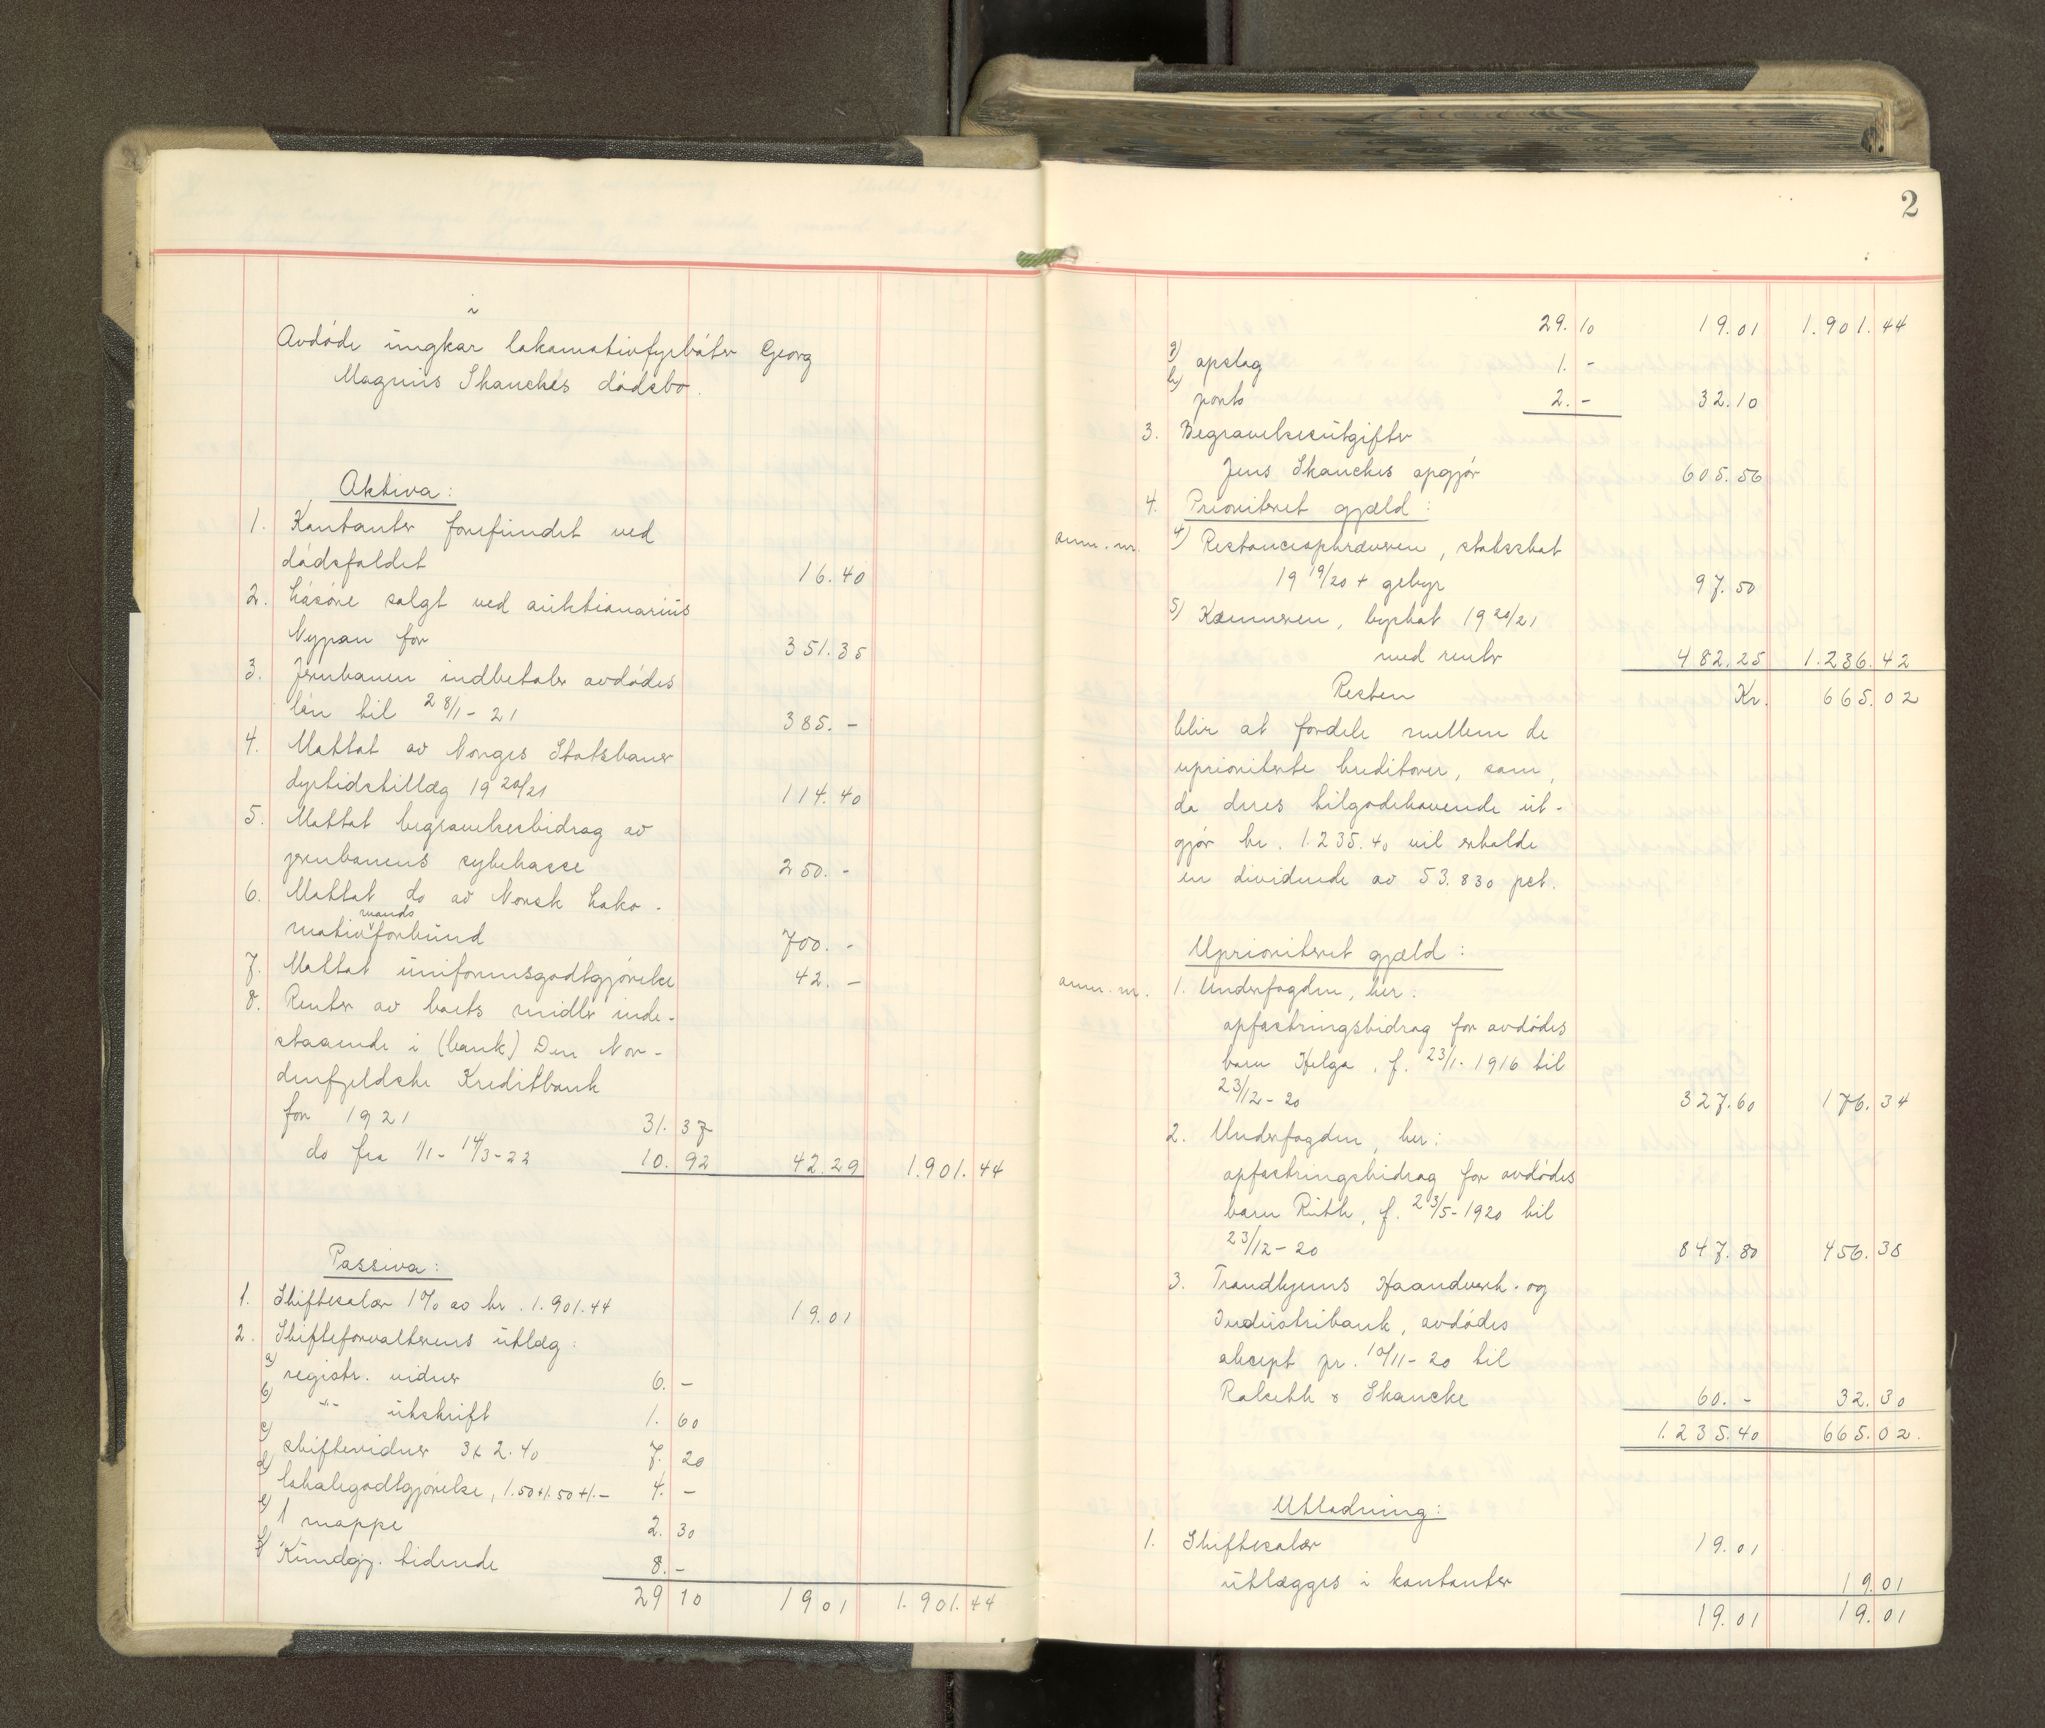 i
Avdøde ungkar lokomotivfyrbøter Georg
Magnus Skanckes dødsbo.
Aktiva:
1. Kontanter forefundet ved
dødsfaldet 16.40
2. Løsøre solgt ved auktionarius
Nypan for 351.35
3. Jernbanen indbetaler avdødes
løn til 28/1-21 385.-
4. Mottat av Norges Statsbaner
dyrtidstillæg 1920/21 114.40
5. Mottat begravelsesbidrag av
jernbanens sykekasse 250.-
6. Mottat do av Norsk Loko-
motivmandsforbund 700.-
7. Mottat uniformsgodtgjørelse 42.-
8. Renter av boets midler inde-
staaende i (bank) Den Nor-
denfjeldske Kreditbank
for 1921 31.37
do fra 1/1-14/3-22 10.92 42.29 1.901.44
Passiva:
1. Skiftesalær 1% av kr. 1.901.44 19.01
2. Skifteforvalterens utlæg:
a) registr. vidner 6.-
b) -"- utskrift 1.60
c) skiftevidner 3x2.40 7.20
d) lokalegodtgjørelse, 1.50+1.50+1.- 4.-
e) 1 mappe 2.30
f) Kundgj. tidende 8.-
29 10 19 01 1.901.44
2
29.10 19.01 1.901.44
g) opslag 1.-
h) porto 2.- 32.10
3. Begravelsesutgifter
Jens Skanckes opgjør 605.56
4. Prioritert gjæld:
anm. nr. 4) Restanceopkræveren, statsskat
1919/20 + gebyr 97.50
5) Kæmneren, byskat 1920/21
med renter 482.25 1.236.42
Resten Kr. 665.02
blir at fordele mellem de
uprioriterte kreditorer, som,
da deres tilgodehavende ut-
gjør kr. 1.235.40 vil erholde
en dividende av 53.830 pct.
Uprioritert gjæld:
anm. nr. 1. Underfogden, her:
opfostringsbidrag for avdødes
barn Helga, f. 23/1-1916 til
23/12-20 327.60 176.34
2. Underfogden, her:
opfostringsbidrag for avdødes
barn Ruth, f. 23/5-1920 til
23/12-20 847.80 456.38
3. Trondhjems Haandverk- og
Industribank, avdødes
aksept pr. 10/11-20 til
Ralseth & Skancke 60.- 32.30
1.235.40 665.02.
Utlodning:
1. Skiftesalær 19.01
utlægges i kontanter 19.01
19.01 19.01